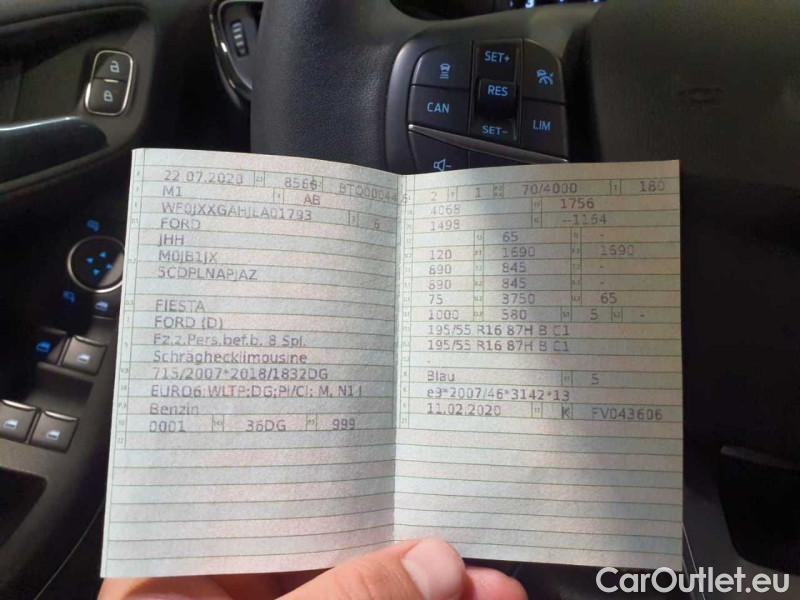 SET+
CAN
RES
LIM
SET-
22.07.2020 8566
M1 AB
WF0JXXGAHJLA01793 6
FORD
JHH
M0JB1JX
5CDPLNAPJAZ
FIESTA
FORD (D)
Fz.z.Pers.bef.b. 8 Spl.
Schräghecklimousine
715/2007*2018/1832DG
EURO6;WLTP;DG;PI/CI; M, N1 I
Benzin
0001 36DG 999
2 1 70/4000 180
4068 1756
1498 --1164
65 -
120 1690 1690
890 845 -
890 845 -
75 3750 65
1000 580 5 -
195/55 R16 87H B C1
195/55 R16 87H B C1
-
Blau 5
e9*2007/46*3142*13
11.02.2020 K FV043606
CarOutlet.eu